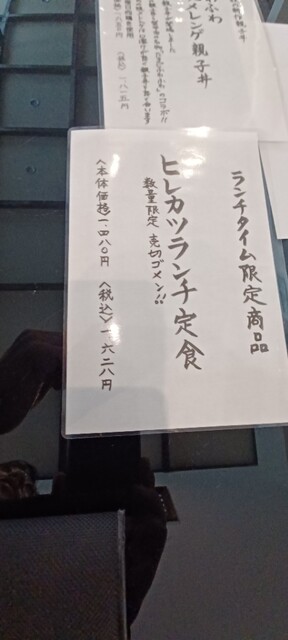 ランチタイム限定商品
ヒレカツランチ定食
数量限定 売切ゴメン!!
〈本体価格〉一、四八〇円 〈税込〉一、六二八円
メレンゲ親子丼
〈税込〉一、八一五円